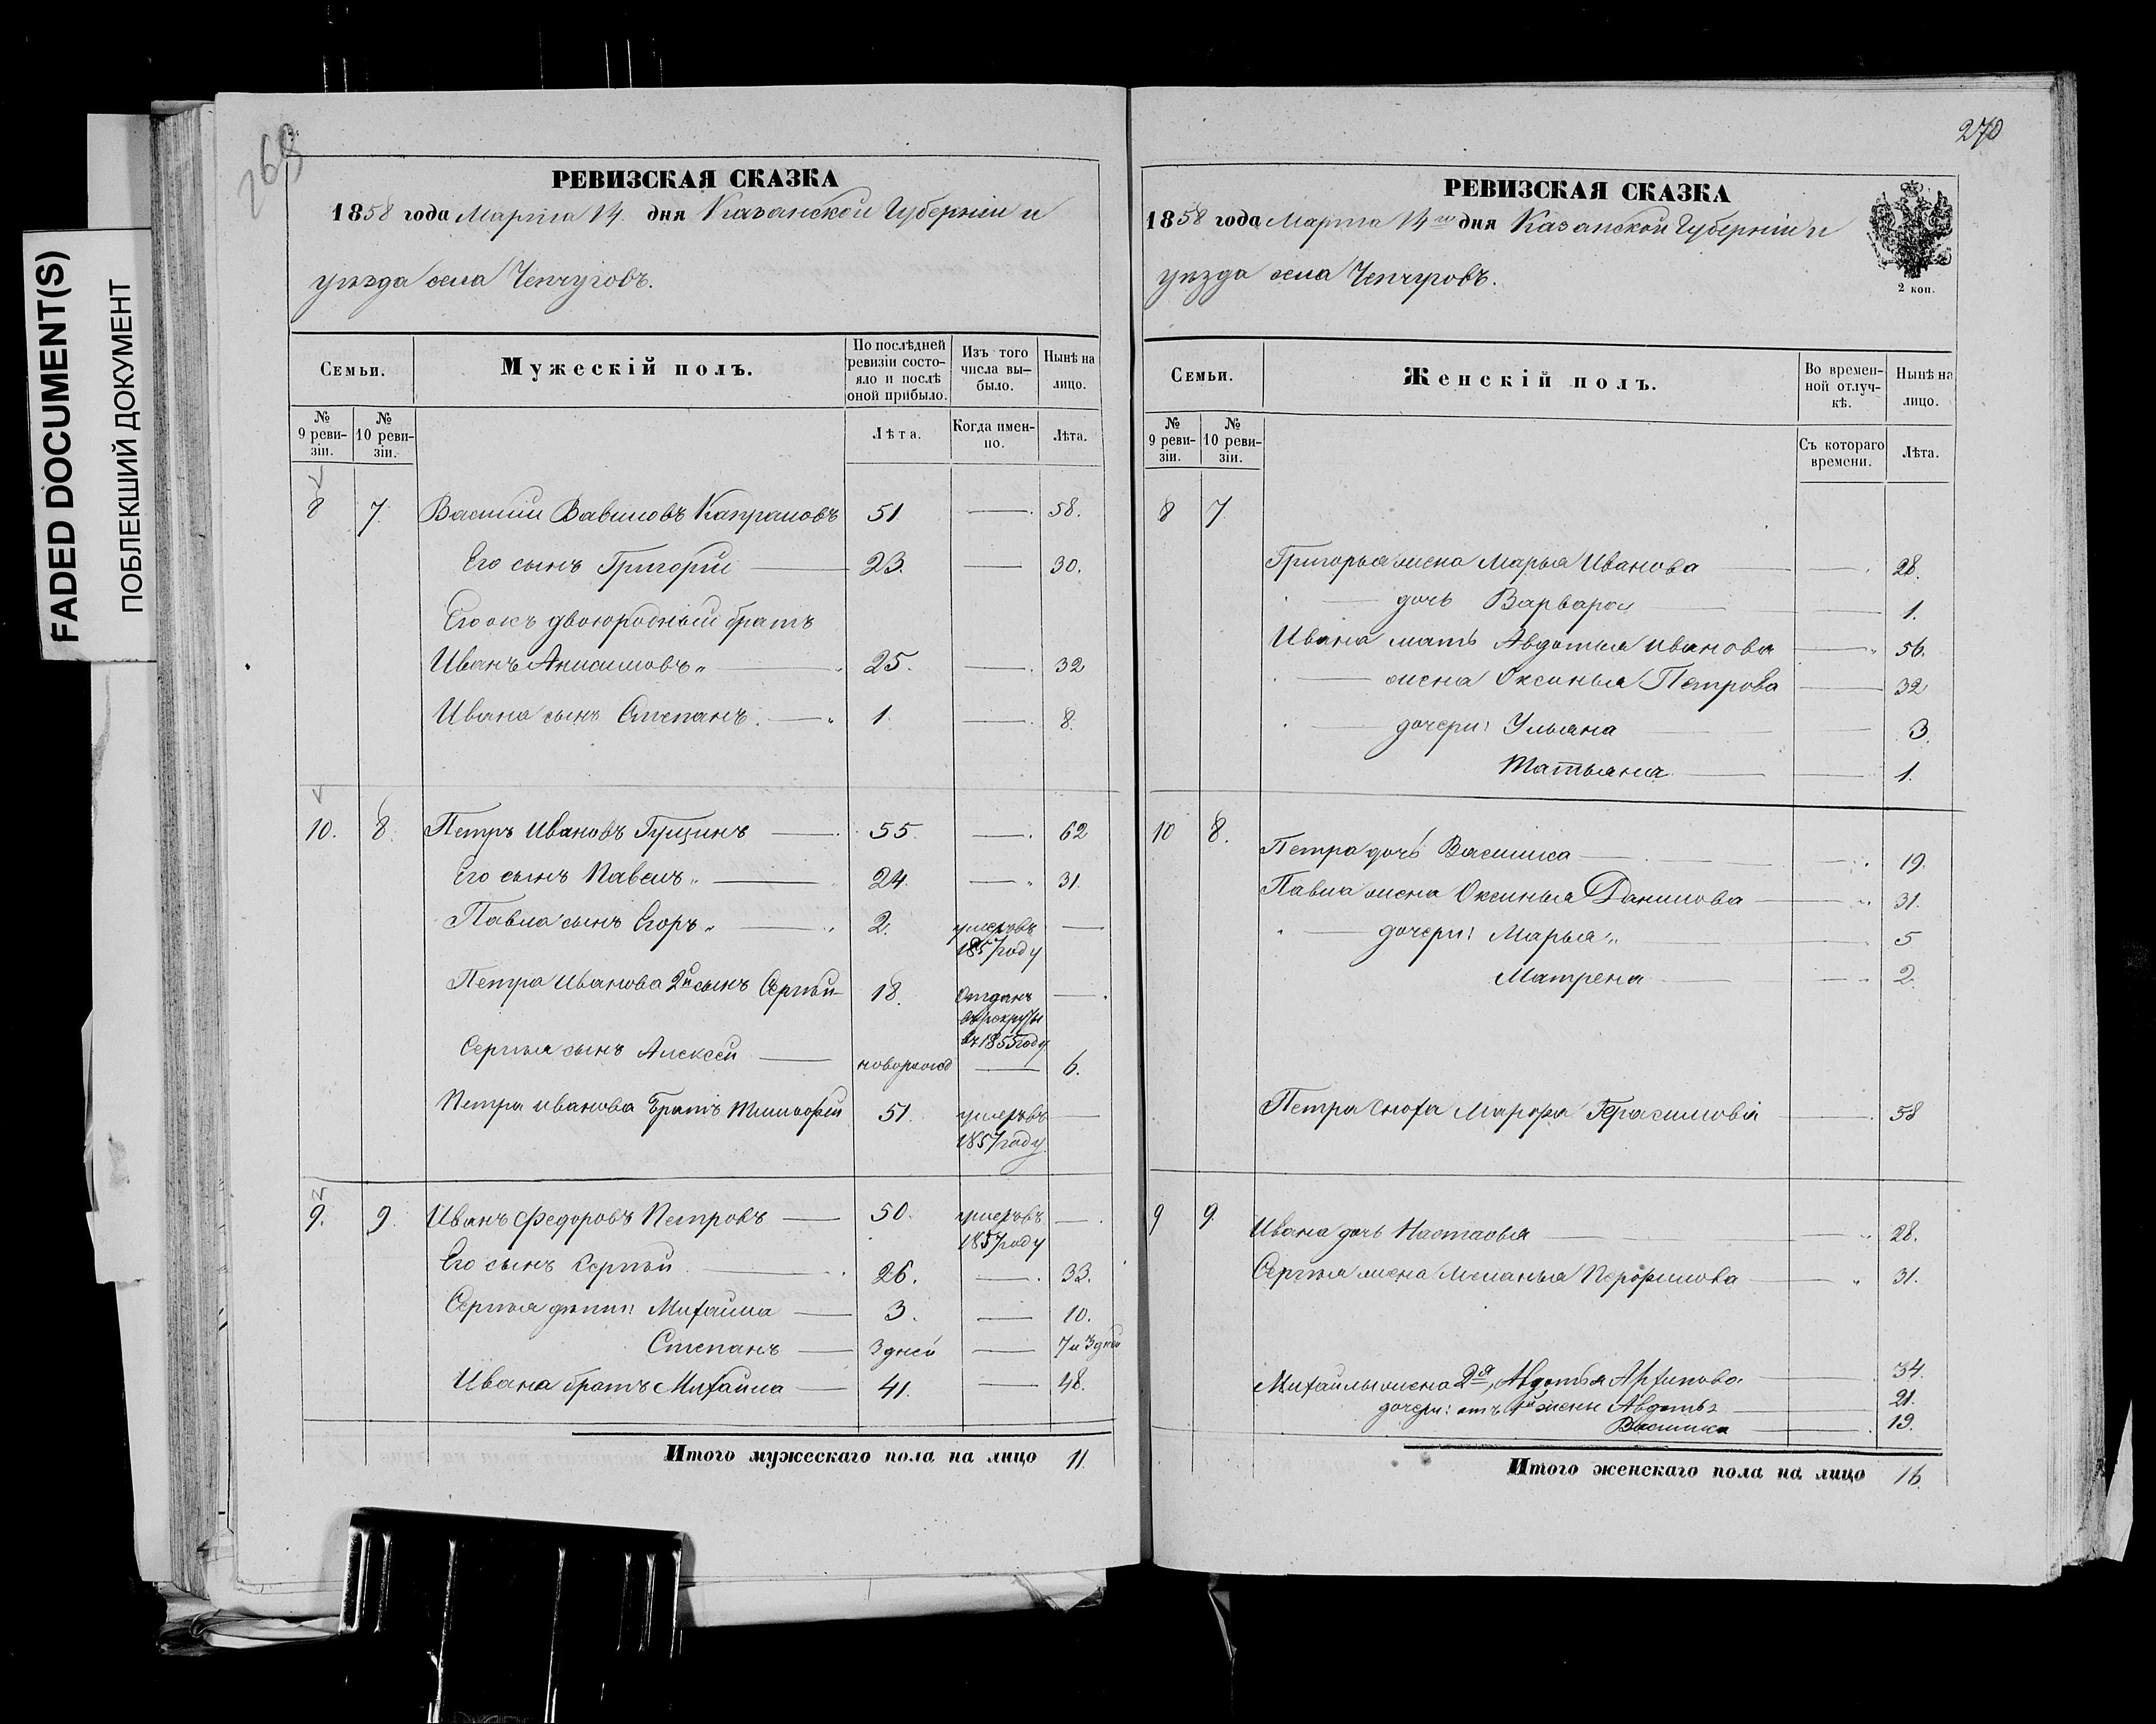 FADED DOCUMENT(S)
ПОБЛЕКШИЙ ДОКУМЕНТ
269
РЕВИЗСКАЯ СКАЗКА
1858 года Марта 14. дня Казанской Губерніи и
уѣзда села Чепчуговъ.
Семьи.
Мужескій полъ.
По послѣдней ревизіи состо-
яло и послѣ оной прибыло.
Изъ того числа вы-
было.
Нынѣ на лицо.
№ 9 реви-
зіи.
№ 10 реви-
зіи.
Лѣта.
Когда имен-
но.
Лѣта.
8 7. Василій Вавиловъ Капраловъ 51 — 58.
Его сынъ Григорій — 23. — 30.
Его жъ двоюродный братъ
Иванъ Анисимовъ — 25. — 32
Ивана сынъ Степанъ. — 1. — 8.
10. 8. Петръ Ивановъ Гущинъ — 55. — 62
Его сынъ Павелъ — 24. — 31.
Павла сынъ Егоръ — 2. умеръ въ 1857 году —
Петра Иванова 2й сынъ Сергѣй 18. Отданъ въ рекруты въ 1855 году —
Сергѣя сынъ Алексѣй — новорожд — 6.
Петра Иванова братъ Тимофей 51. умеръ въ 1857 году —
9. 9. Иванъ Федоровъ Петровъ — 50. умеръ въ 1857 году —
Его сынъ Сергѣй — 26. — 33.
Сергѣя дѣти: Михайла — 3. — 10.
Степанъ — 3 дней — 7 и 3 дней
Ивана братъ Михайла — 41. — 48.
Итого мужескаго пола на лицо 11.
270
РЕВИЗСКАЯ СКАЗКА
1858 года Марта 14го дня Казанской Губерніи и
уѣзда села Чепчуговъ.
2 коп.
Семьи.
Женскій полъ.
Во времен-
ной отлуч-
кѣ.
Нынѣ на лицо.
№ 9 реви-
зіи.
№ 10 реви-
зіи.
Съ котораго времени.
Лѣта.
8 7
Григорья жена Марья Иванова — 28.
— дочь Варвара — 1.
Ивана мать Авдотья Иванова — 56.
— жена Оксинья Петрова — 32
— дочери: Ульяна — 3.
Татьяна — 1.
10 8.
Петра дочь Василиса — 19.
Павла жена Оксинья Данилова — 31.
— дочери: Марья — 5
Матрена — 2.
Петра сноха Марфа Герасимова — 58
9 9.
Ивана дочь Настасья — 28.
Сергѣя жена Меланья Перфилова — 31.
Михайлы жена 2я, Авдотья Архипова — 34.
дочери: отъ 1й жены Авдотья — 21.
Василиса — 19.
Итого женскаго пола на лицо 16.